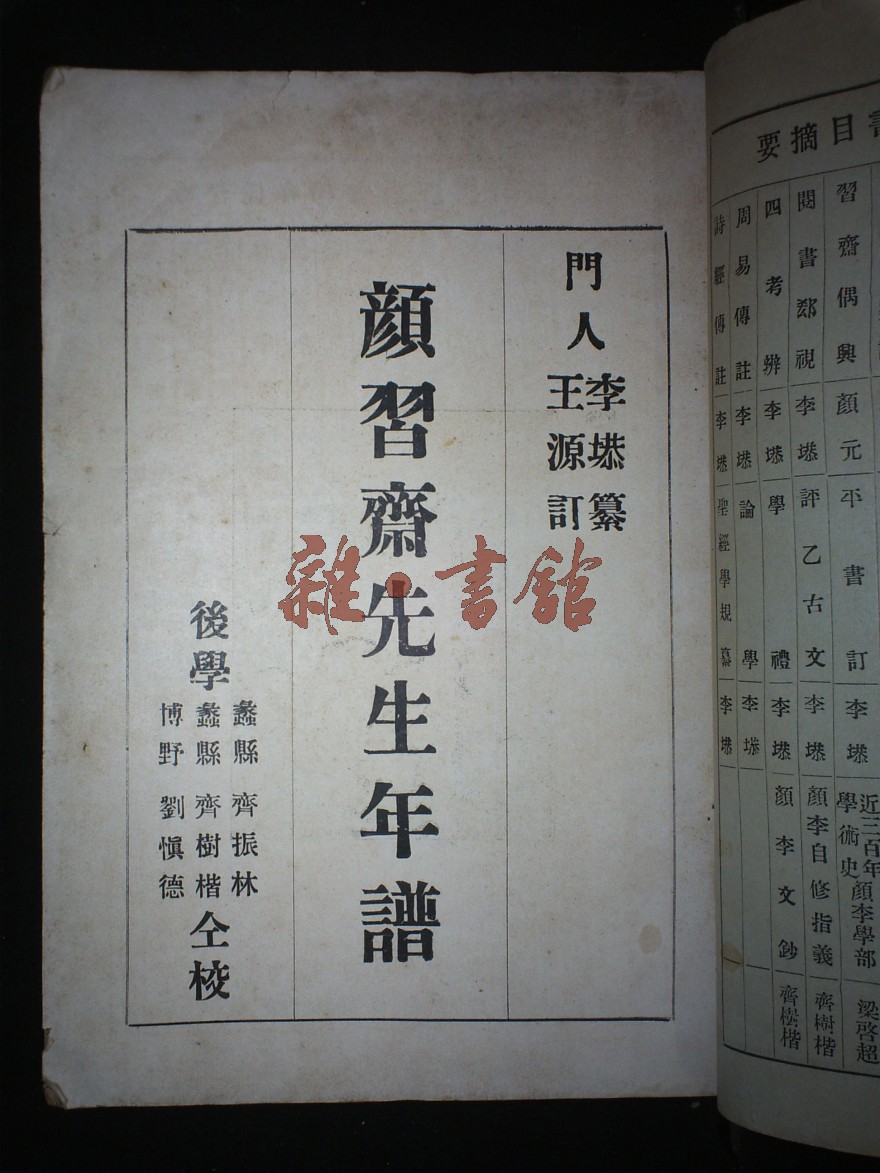 書目摘要
習齋偶興 顏元 平書訂 李塨 近三百年學術史顏李學部 梁啓超
閱書郄視 李塨 評乙古文 李塨 顏李自修指義 齊樹楷
四考辨 李塨 學禮 李塨 顏李文鈔 齊樹楷
周易傳註 李塨 論學 李塨
詩經傳註 李塨 聖經學規纂 李塨
門人
李塨纂
王源訂
顏習齋先生年譜
後學
蠡縣 齊振林
蠡縣 齊樹楷
博野 劉慎德
仝校
雜·書館